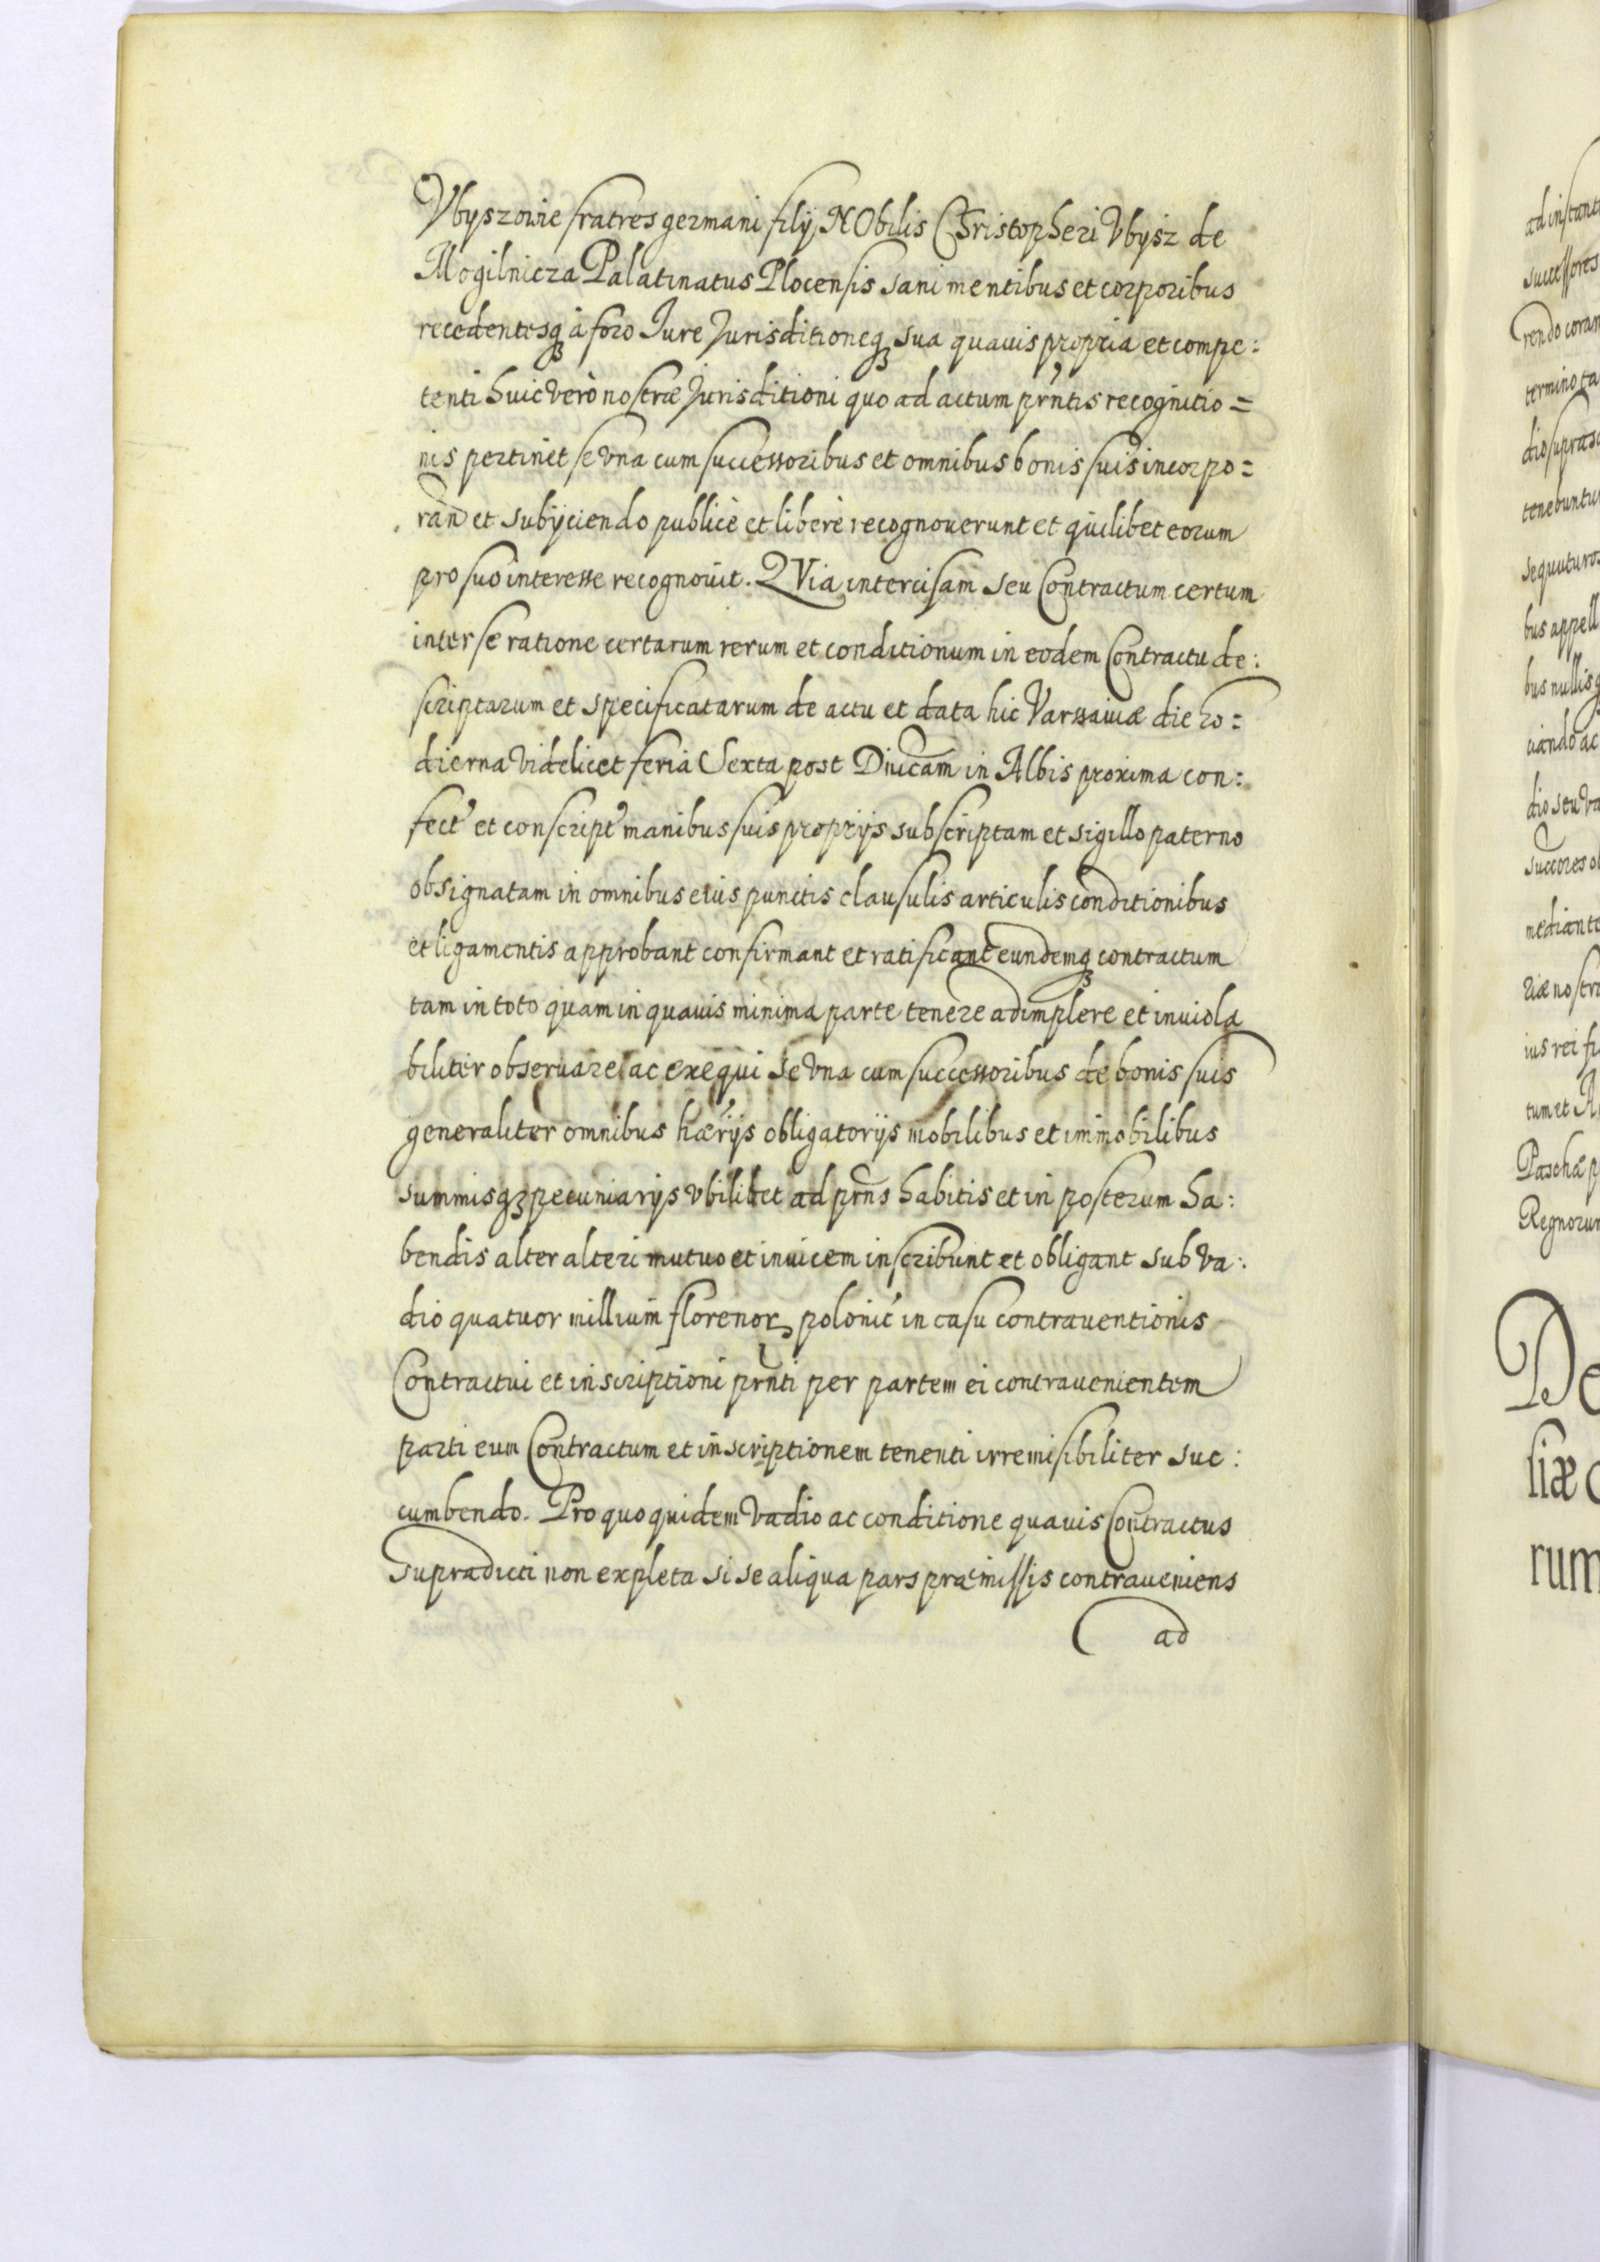 Vbyszowie fratres germani filij NObilis Christopheri Vbysz de
Mogilnicza Palatinatus Plocensis sani mentibus et corporibus
recedentesq à foro Iure Iurisditioneq sua quauis propria et compe:
tenti huic verò nostræ Iurisditioni quo ad actum prntis recognitio=
nis pertinet se vna cum successoribus et omnibus bonis suis incorpo=
ran et subijciendo publicè et liberè recognouerunt et quilibet eorum
pro suo interesse recognouit. QVia intercisam seu Contractum certum
inter se ratione certarum rerum et conditionum in eodem Contractu de:
scriptarum et specificatarum de actu et data hic Varssauiæ die ho=
dierna videlicet feria Sexta post Dnicam in Albis proxima con:
fect et conscript manibus suis proprijs subscriptam et sigillo paterno
obsignatam in omnibus eius punctis clausulis articulis conditionibus
et ligamentis approbant confirmant et ratificant eundemq contractum
tam in toto quam in quauis minima parte tenere adimplere et inuiola
biliter obseruare ac exequi se vna cum successoribus de bonis suis
generaliter omnibus hærijs obligatorijs mobilibus et immobilibus
summisq pecuniarijs vbilibet ad prns habitis et in posterum ha:
bendis alter alteri mutuo et inuicem inscribunt et obligant sub va:
dio quatuor millium florenor polonic in casu contrauentionis
Contractui et inscriptioni prnti per partem ei contrauenientem
parti eum Contractum et inscriptionem tenenti irremisibiliter suc:
cumbendo. Pro quo quidem vadio ac conditione quauis Contractus
supradicti non expleta si se aliqua pars præmissis contraueniens
ad
ad instant
successores
rendo coram
termino ta
dio suprasc
tenebuntur
sequuturos
bus appell
bus nullis
ciando ac
dio seu va
succores ob
mediante
riæ nostra
ius rei fi
tum et A
Paschæ p
Regnorum
De
liæ c
rum